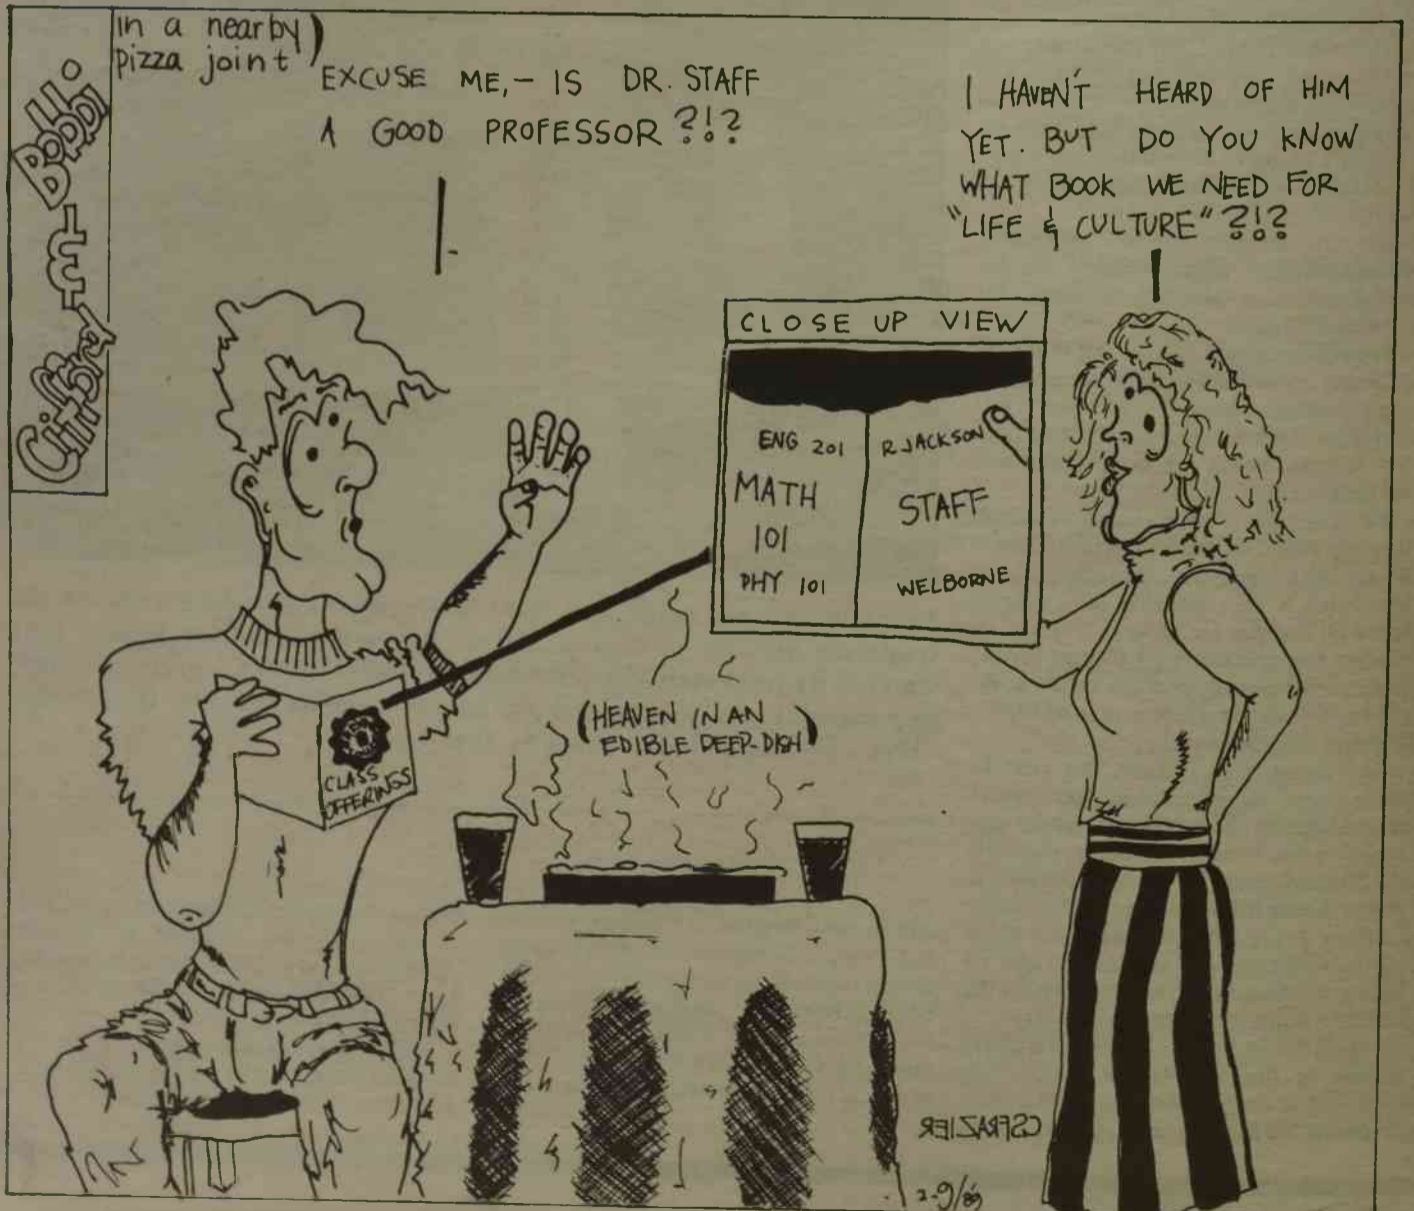 in a nearby
pizza joint
EXCUSE ME,— IS DR. STAFF
A GOOD PROFESSOR ?!?
I HAVEN'T HEARD OF HIM
YET. BUT DO YOU KNOW
WHAT BOOK WE NEED FOR
"LIFE & CULTURE" ?!?
CLOSE UP VIEW
ENG 201 R JACKSON
MATH 101 STAFF
PHY 101 WELBORNE
(HEAVEN IN AN
EDIBLE DEEP-DISH)
CLASS
OFFERINGS
CSFRAZIER
2-9/89